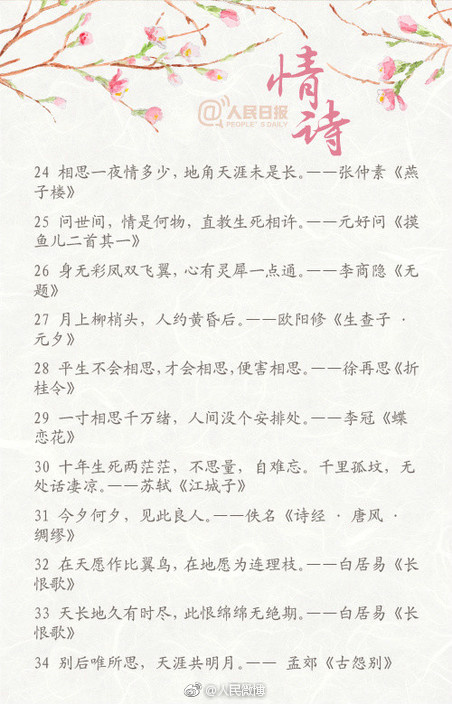 情诗
@人民日报
PEOPLE'S DAILY
24 相思一夜情多少，地角天涯未是长。——张仲素《燕
子楼》
25 问世间，情是何物，直教生死相许。——元好问《摸
鱼儿二首其一》
26 身无彩凤双飞翼，心有灵犀一点通。——李商隐《无
题》
27 月上柳梢头，人约黄昏后。——欧阳修《生查子 ·
元夕》
28 平生不会相思，才会相思，便害相思。——徐再思《折
桂令》
29 一寸相思千万绪，人间没个安排处。——李冠《蝶
恋花》
30 十年生死两茫茫，不思量，自难忘。千里孤坟，无
处话凄凉。——苏轼《江城子》
31 今夕何夕，见此良人。——佚名《诗经 · 唐风 ·
绸缪》
32 在天愿作比翼鸟，在地愿为连理枝。——白居易《长
恨歌》
33 天长地久有时尽，此恨绵绵无绝期。——白居易《长
恨歌》
34 别后唯所思，天涯共明月。—— 孟郊《古怨别》
@人民微博